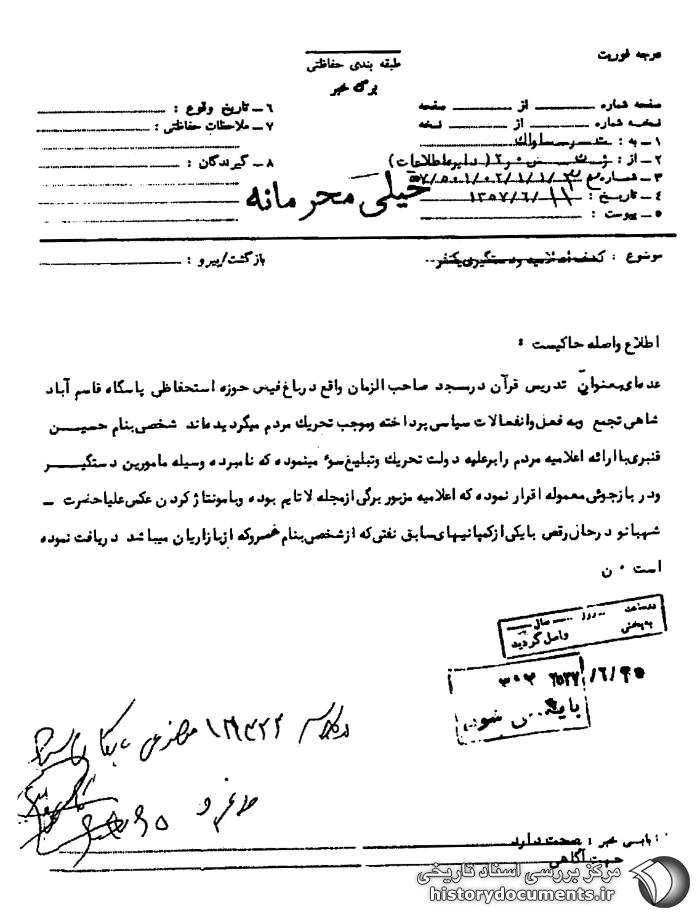 درجه فوریت
طبقه بندی حفاظتی
برگ خبر
صفحه شماره ـــ از ـــ صفحه
نسخه شماره ـــ از ـــ نسخه
۱ ـ به :
۲ ـ از : (دایره اطلاعات)
۳ ـ شماره
۴ ـ تاریخ : ۱۳۵۷/۶/۱۱
۵ ـ پیوست :
۶ ـ تاریخ وقوع :
۷ ـ ملاحظات حفاظتی :
۸ ـ گیرندگان :
خیلی محرمانه
موضوع : کشف اعلامیه و دستگیری یکنفر
بازگشت/پیرو :
اطلاع واصله حاکیست :
عده‌ای بعنوان تدریس قرآن در مسجد صاحب الزمان واقع در باغ فیض حوزه استحفاظی پاسگاه قاسم آباد
شاهی تجمع وبه فعل وانفعالات سیاسی پرداخته وموجب تحریک مردم میگردیده‌اند شخصی بنام حسین
قنبری با ارائه اعلامیه مردم را برعلیه دولت تحریک وتبلیغ سوء مینموده که نامبرده وسیله مامورین دستگیر
ودر بازجوئی معموله اقرار نموده که اعلامیه مزبور برگی از مجله لاتایم بوده وبا مونتاژ کردن عکس علیاحضرت ـ
شهبانو درحال رقص با یکی از کمپانیهای سابق نفتی که از شخصی بنام خسرو که از بازاریان میباشد دریافت نموده
است ۰ ن
در ساعت ... روز ... سال ...
به بخش واصل گردید
بایگانی شود
صحت دارد
جهت آگاهی
مرکز بررسی اسناد تاریخی
historydocuments.ir